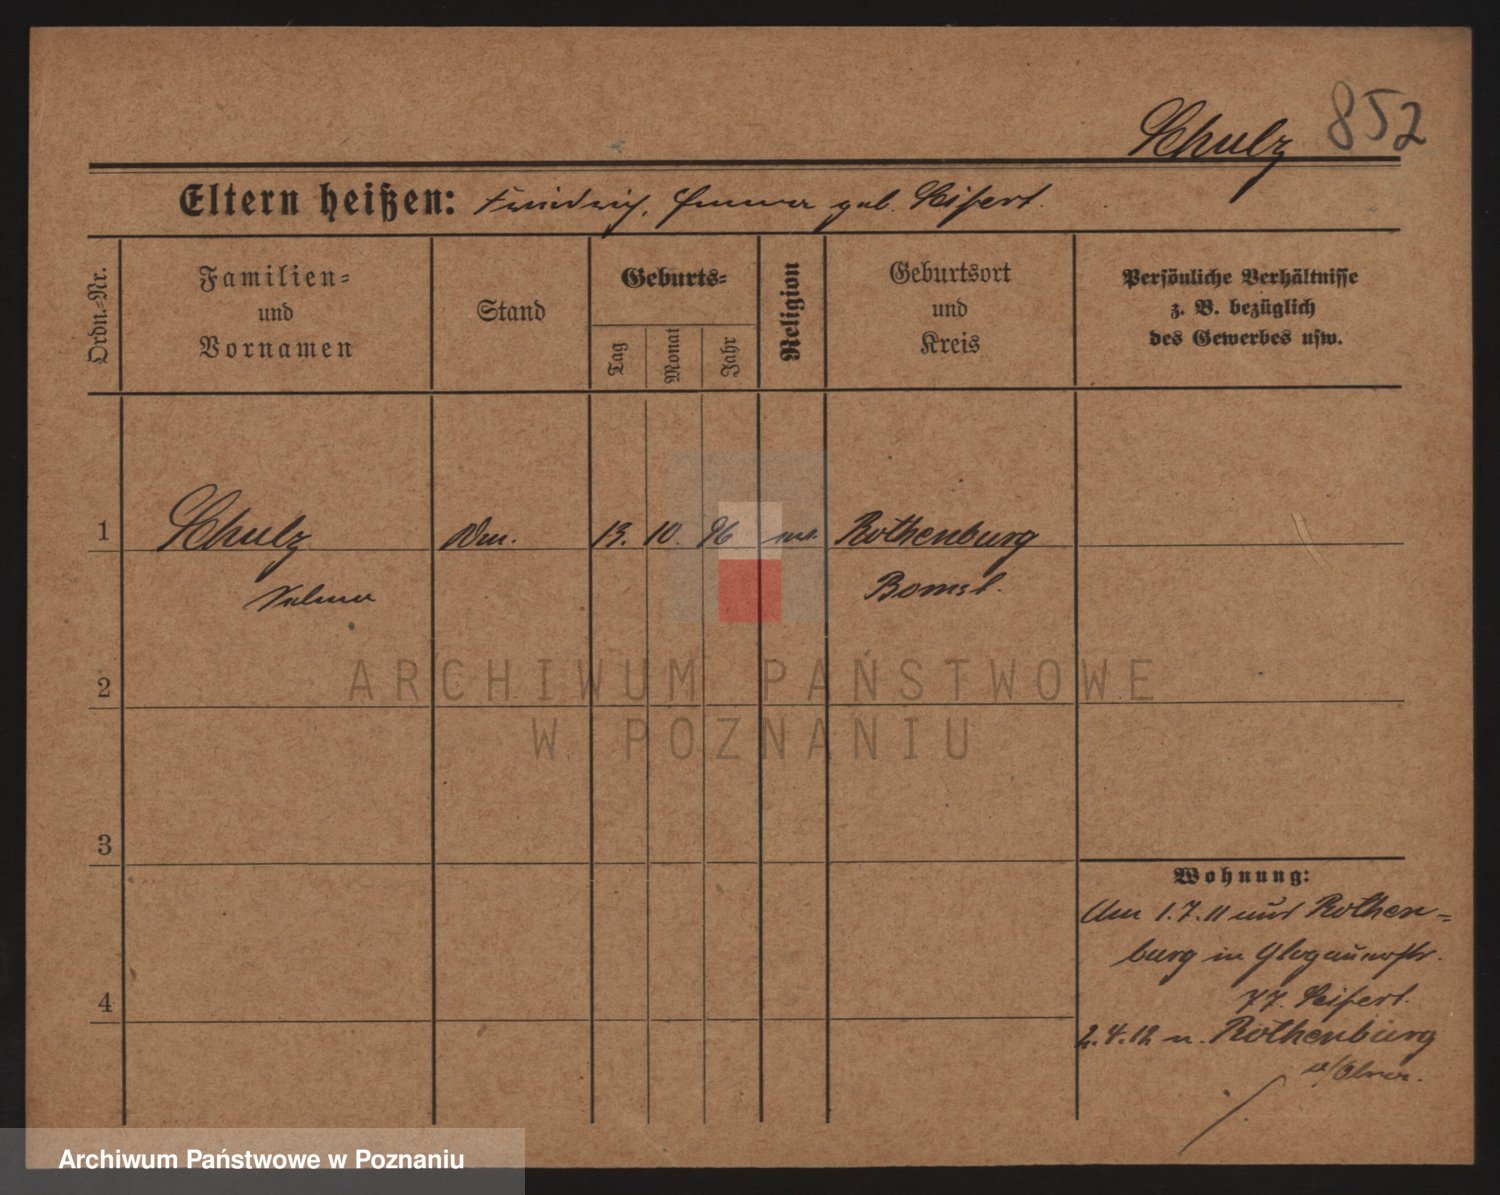 Schulz 852
Eltern heißen: Friedrich, Emma geb. Seifert.
Ordn.-Nr.
Familien-
und
Vornamen
Stand
Geburts-
Tag
Monat
Jahr
Religion
Geburtsort
und
Kreis
Persönliche Verhältnisse
z. B. bezüglich
des Gewerbes usw.
1 Schulz 13. 10. 96 Rothenburg
Bomst.
ARCHIWUM PAŃSTWOWE
W POZNANIU
2
3
4
Wohnung:
Am 1.7.11 aus Rothen-
burg in Glogauerstr.
77. Seifert.
2.4.12 n. Rothenburg
Archiwum Państwowe w Poznaniu